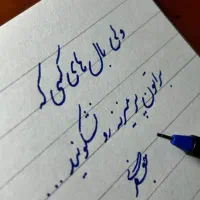 ولی بال های کسی که
براتون پر میزنه رو نشکونید...